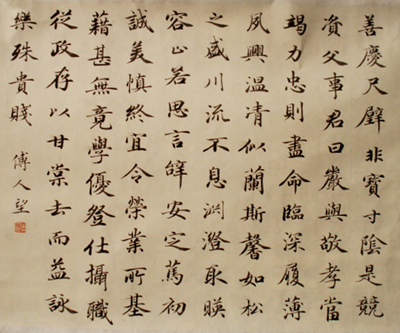 善慶尺璧非寶寸陰是競
資父事君曰嚴與敬孝當
竭力忠則盡命臨深履薄
夙興温清似蘭斯馨如松
之盛川流不息渊澄取暎
容止若思言辭安定篤初
誠美慎終宜令榮業所基
藉甚無竟學優登仕攝職
從政存以甘棠去而益詠
樂殊貴賤 傅人望